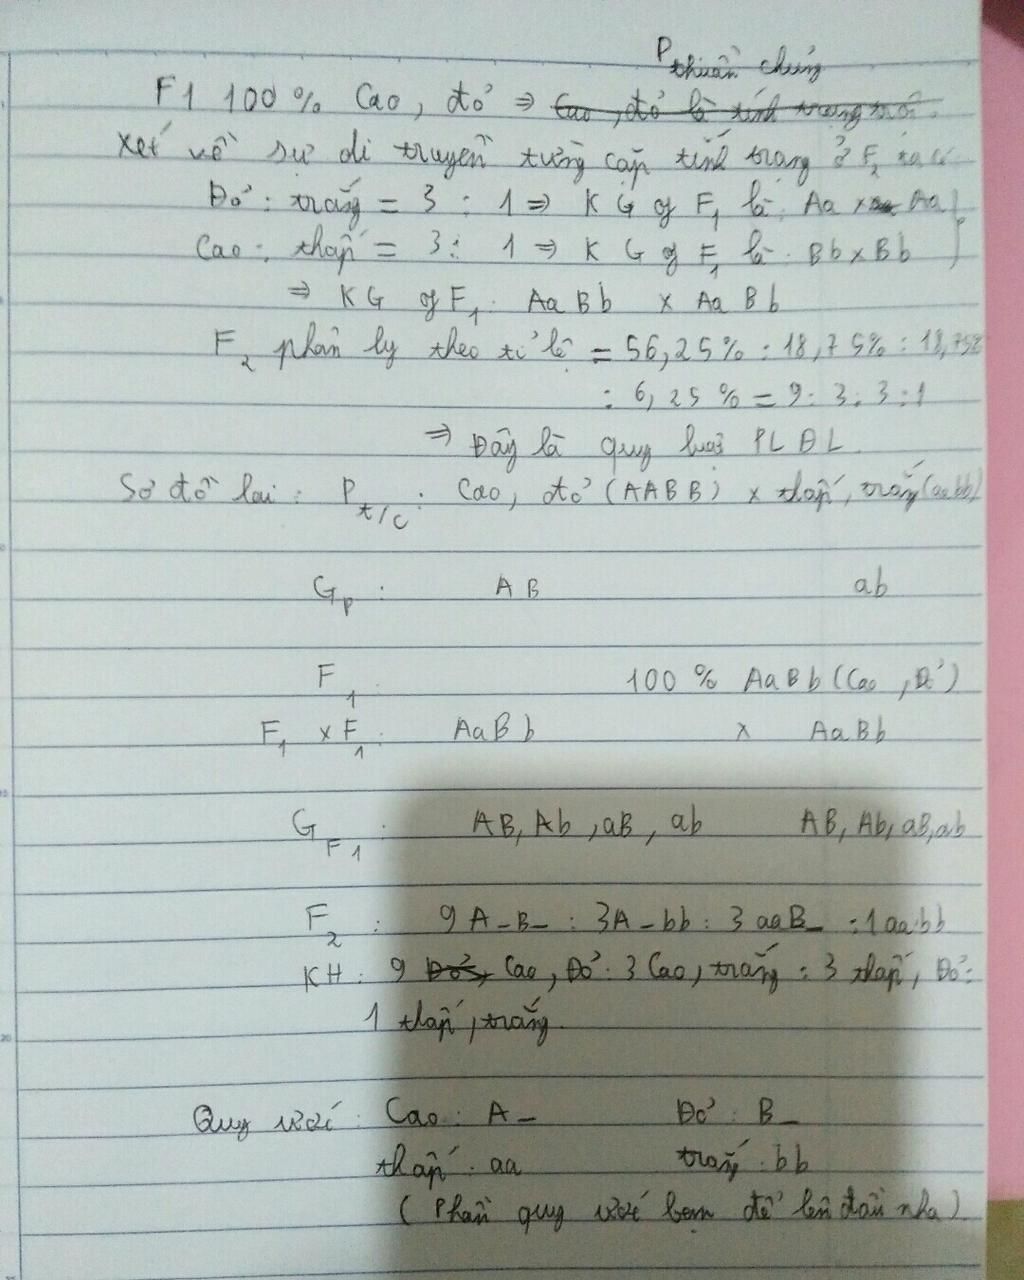 P thuần chủng
F1 100% Cao, đỏ => Cao, đỏ là tính trạng trội.
Xét về sự di truyền từng cặp tính trạng ở F2 ta có
Đỏ : trắng = 3 : 1 => KG of F1 là: Aa x Aa
Cao : thấp = 3 : 1 => KG of F1 là: Bb x Bb
=> KG of F1: AaBb x AaBb
F2 phân ly theo tỉ lệ = 56,25% : 18,75% : 18,75%
: 6,25% = 9 : 3 : 3 : 1
=> Đây là quy luật PLĐL
Sơ đồ lai : P t/c : Cao, đỏ (AABB) x thấp, trắng (aabb)
Gp : AB ab
F1 100% AaBb (Cao, Đỏ)
F1 x F1 : AaBb x AaBb
GF1 : AB, Ab, aB, ab AB, Ab, aB, ab
F2 : 9 A-B- : 3A-bb : 3 aaB- : 1aabb
KH : 9 Đỏ, Cao, Đỏ : 3 Cao, trắng : 3 thấp, Đỏ :
1 thấp, trắng.
Quy ước : Cao : A- Đỏ : B-
thấp : aa trắng : bb
(Phần quy ước bạn để lên đầu nha)